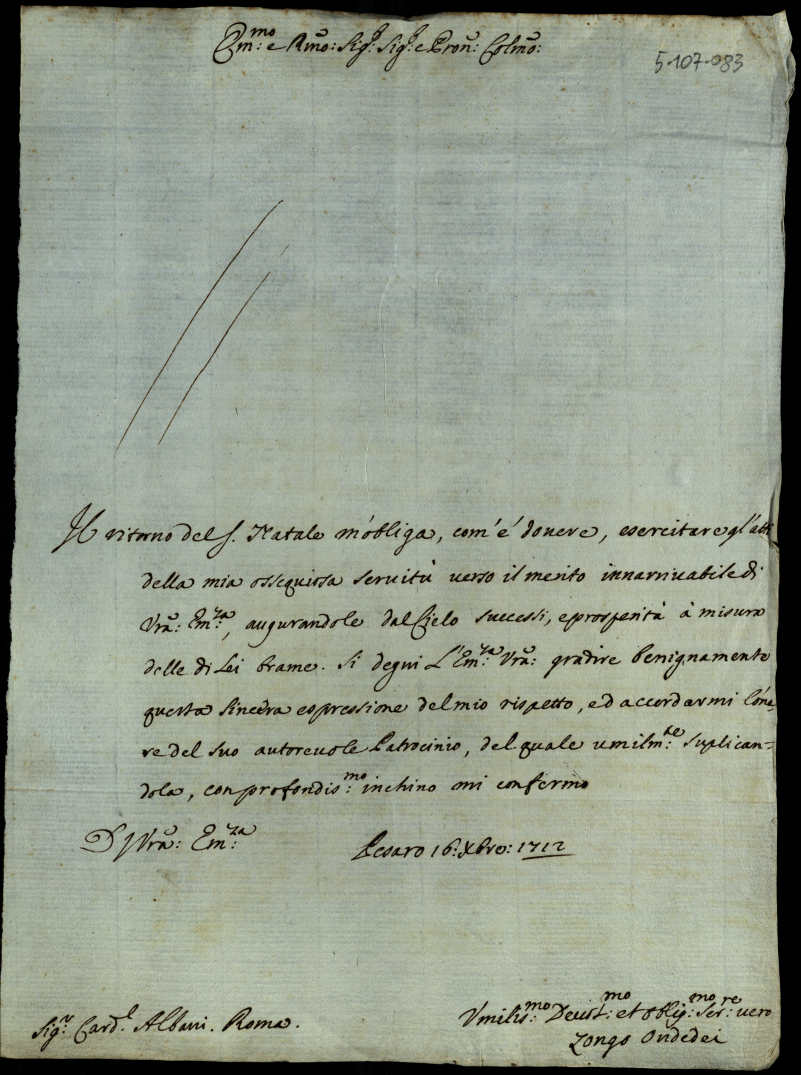 Em:mo e Rmo: Sig.r Sig.r e Pron: Colmo:
5-107-083
Il ritorno del S. Natale m'obliga, com'è douere, esercitare gl'atti
della mia ossequiosa seruitù verso il merito innarriuabile di
Vra: Em:za, augurandole dal Cielo successi, e prosperità à misura
delle di Lei brame. Si degni L'Em:za Vra: gradire benignamente
questa sincera espressione del mio rispetto, ed accordarmi l'ono-
re del suo autoreuole Patrocinio, del quale umilm:te suplican-
dola, con profondis:mo inchino mi confermo
D'Vra: Em:za
Pesaro 16: Xbre: 1712
Sig:r Card.l Albani. Roma.
Vmilis:mo Deuot:mo et Oblig:mo Ser:re vero
Zongo Ondedei